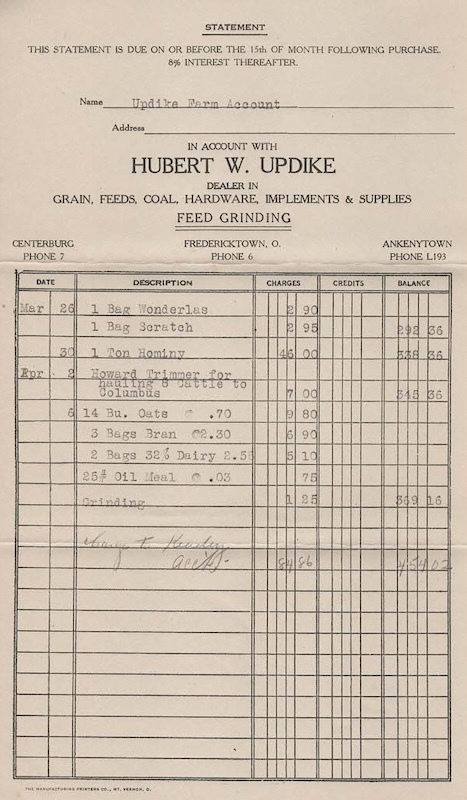 STATEMENT
THIS STATEMENT IS DUE ON OR BEFORE THE 15th OF MONTH FOLLOWING PURCHASE.
8% INTEREST THEREAFTER.
Name Updike Farm Account
Address
IN ACCOUNT WITH
HUBERT W. UPDIKE
DEALER IN
GRAIN, FEEDS, COAL, HARDWARE, IMPLEMENTS & SUPPLIES
FEED GRINDING
CENTERBURG FREDERICKTOWN, O. ANKENYTOWN
PHONE 7 PHONE 6 PHONE L193
DATE DESCRIPTION CHARGES CREDITS BALANCE
Mar 26 1 Bag Wonderlas 2 90
1 Bag Scratch 2 95 292 36
30 1 Ton Hominy 46 00 338 36
Apr 2 Howard Trimmer for
hauling 8 Cattle to
Columbus 7 00 345 36
6 14 Bu. Oats @ .70 9 80
3 Bags Bran @2.30 6 90
2 Bags 32% Dairy 2.55 5 10
25# Oil Meal @ .03 75
Grinding 1 25 369 16
charge to
acc't - 84 86 454 02
THE MANUFACTURING PRINTERS CO., MT. VERNON, O.